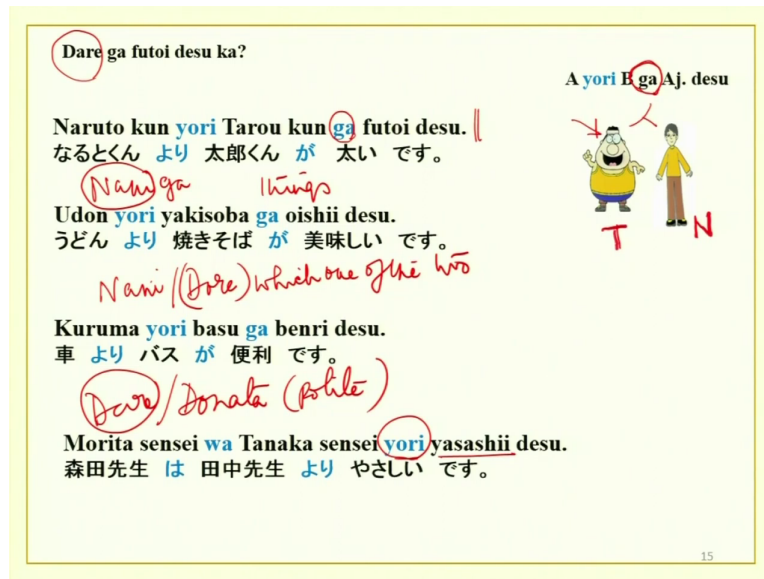 Dare ga futoi desu ka?
A yori B ga Aj. desu
Naruto kun yori Tarou kun ga futoi desu.
なるとくん より 太郎くん が 太い です。
Nani ga things
T N
Udon yori yakisoba ga oishii desu.
うどん より 焼きそば が 美味しい です。
Nani / (Dore) which one of the two
Kuruma yori basu ga benri desu.
車 より バス が 便利 です。
Dare / Donata (polite)
Morita sensei wa Tanaka sensei yori yasashii desu.
森田先生 は 田中先生 より やさしい です。
15